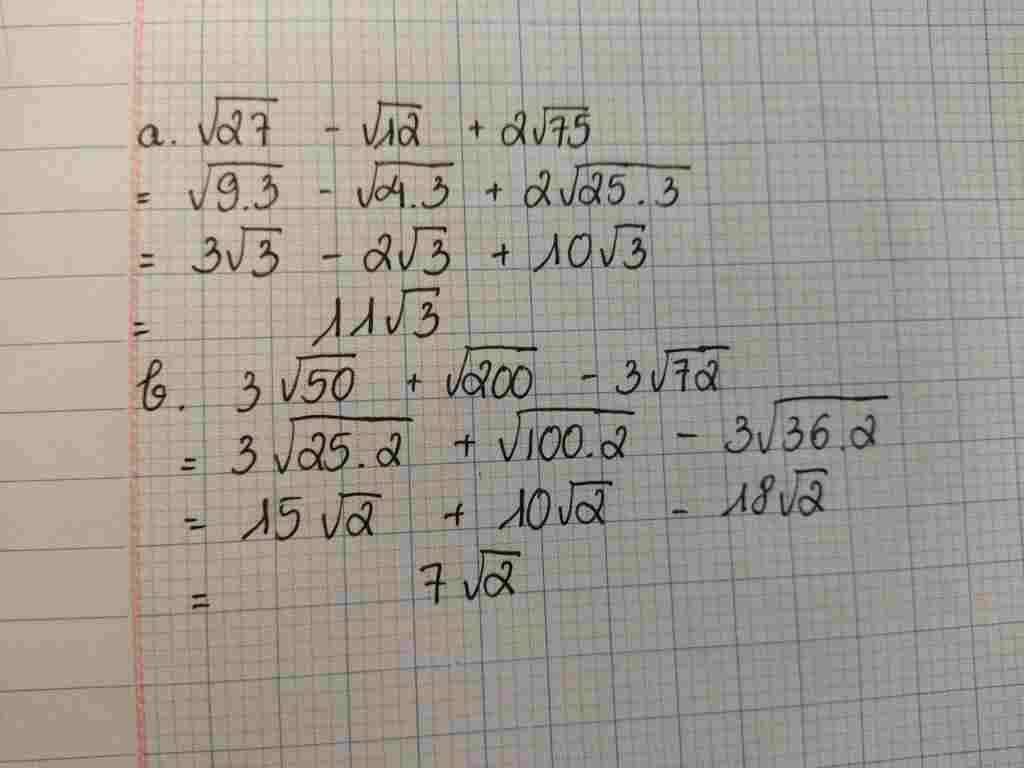 a. √27 - √12 + 2√75
= √9.3 - √4.3 + 2√25.3
= 3√3 - 2√3 + 10√3
= 11√3
b. 3√50 + √200 - 3√72
= 3√25.2 + √100.2 - 3√36.2
= 15√2 + 10√2 - 18√2
= 7√2